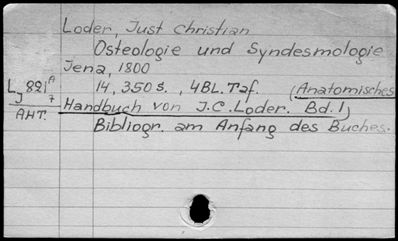 Loder, Just Christian
Osteologie und Syndesmologie
Jena, 1800
14, 350 S., 4 Bl. Taf. (Anatomisches
Handbuch von J.C. Loder. Bd. 1)
Bibliogr. am Anfang des Buches.
L 821 A
J 7
AHT.